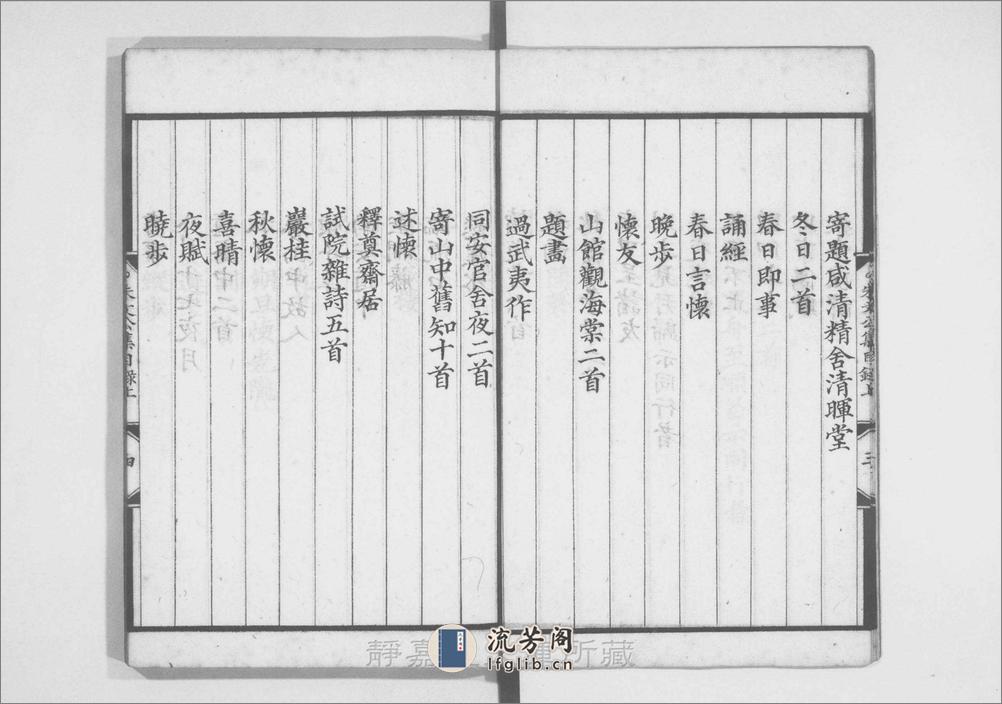 寄題咸清精舍清暉堂
冬日二首
春日即事
誦經
春日言懷
晚步
懷友
山館觀海棠二首
題畫
過武夷作
同安官舍夜二首
寄山中舊知十首
述懷
釋奠齋居
試院雜詩五首
巖桂
秋懷
喜晴
夜賦
曉步
朱文公集目錄上
三
朱文公集目錄上
四
靜嘉
所藏
流芳阁
lfglib.cn